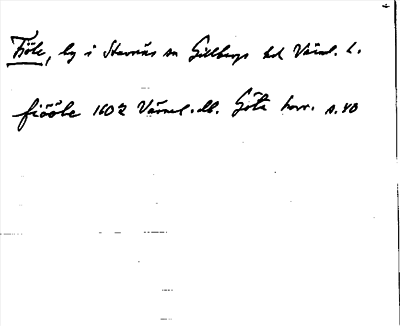 Fjöle, by i Stavnäs sn Gillbergs hd Värml. l.
fiööle 1602 Värmel. db. Göta hovr. s. 40